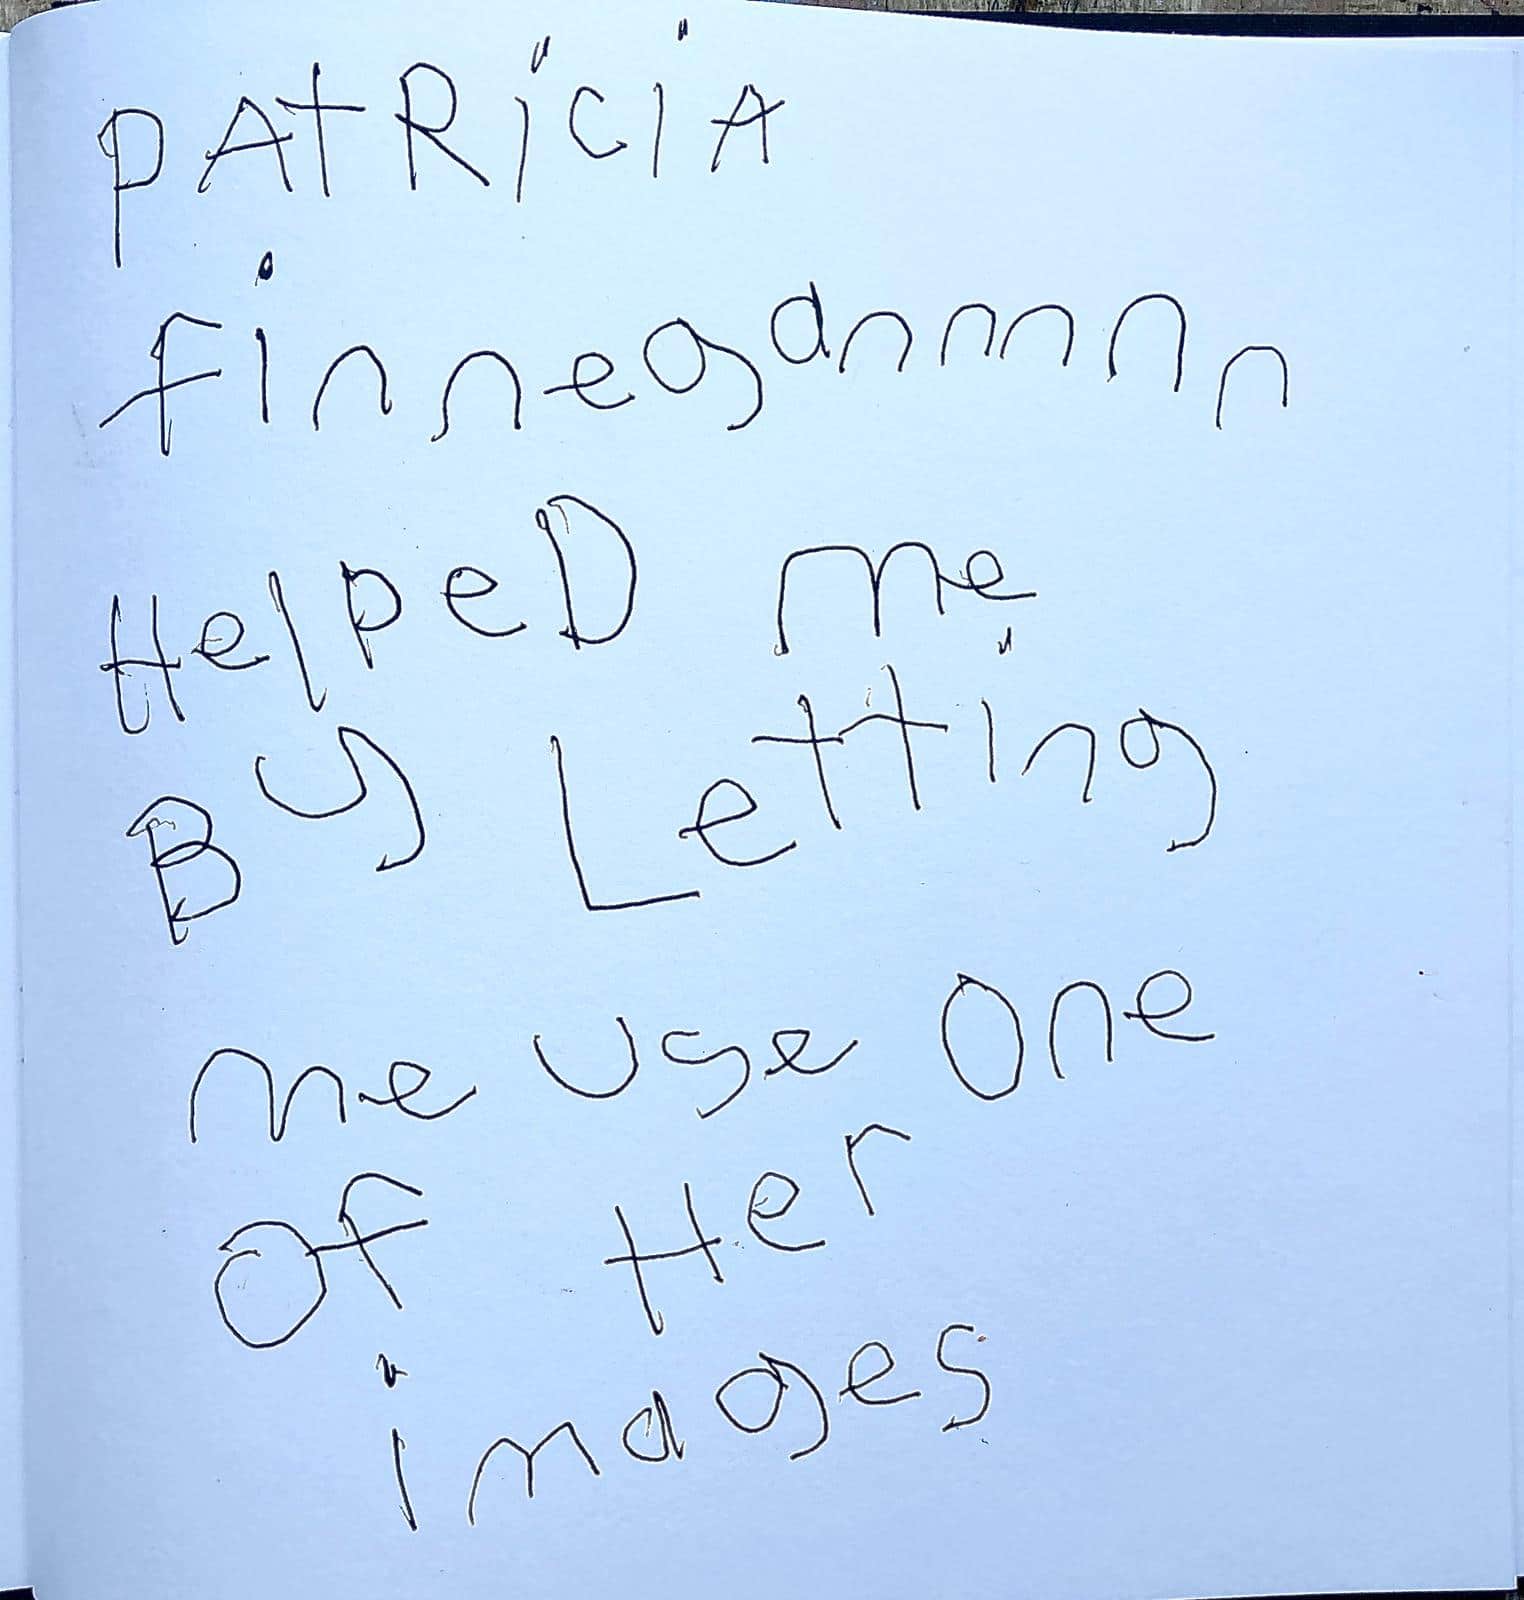 PAtRiCiA
finnegannmnn
HelpeD me
By Letting
me use One
Of Her
images